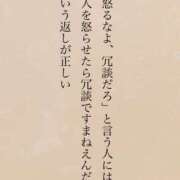 怒るなよ、冗談だろ」と言う人には
人を怒らせたら冗談ですまねえんだ
いう返しが正しい